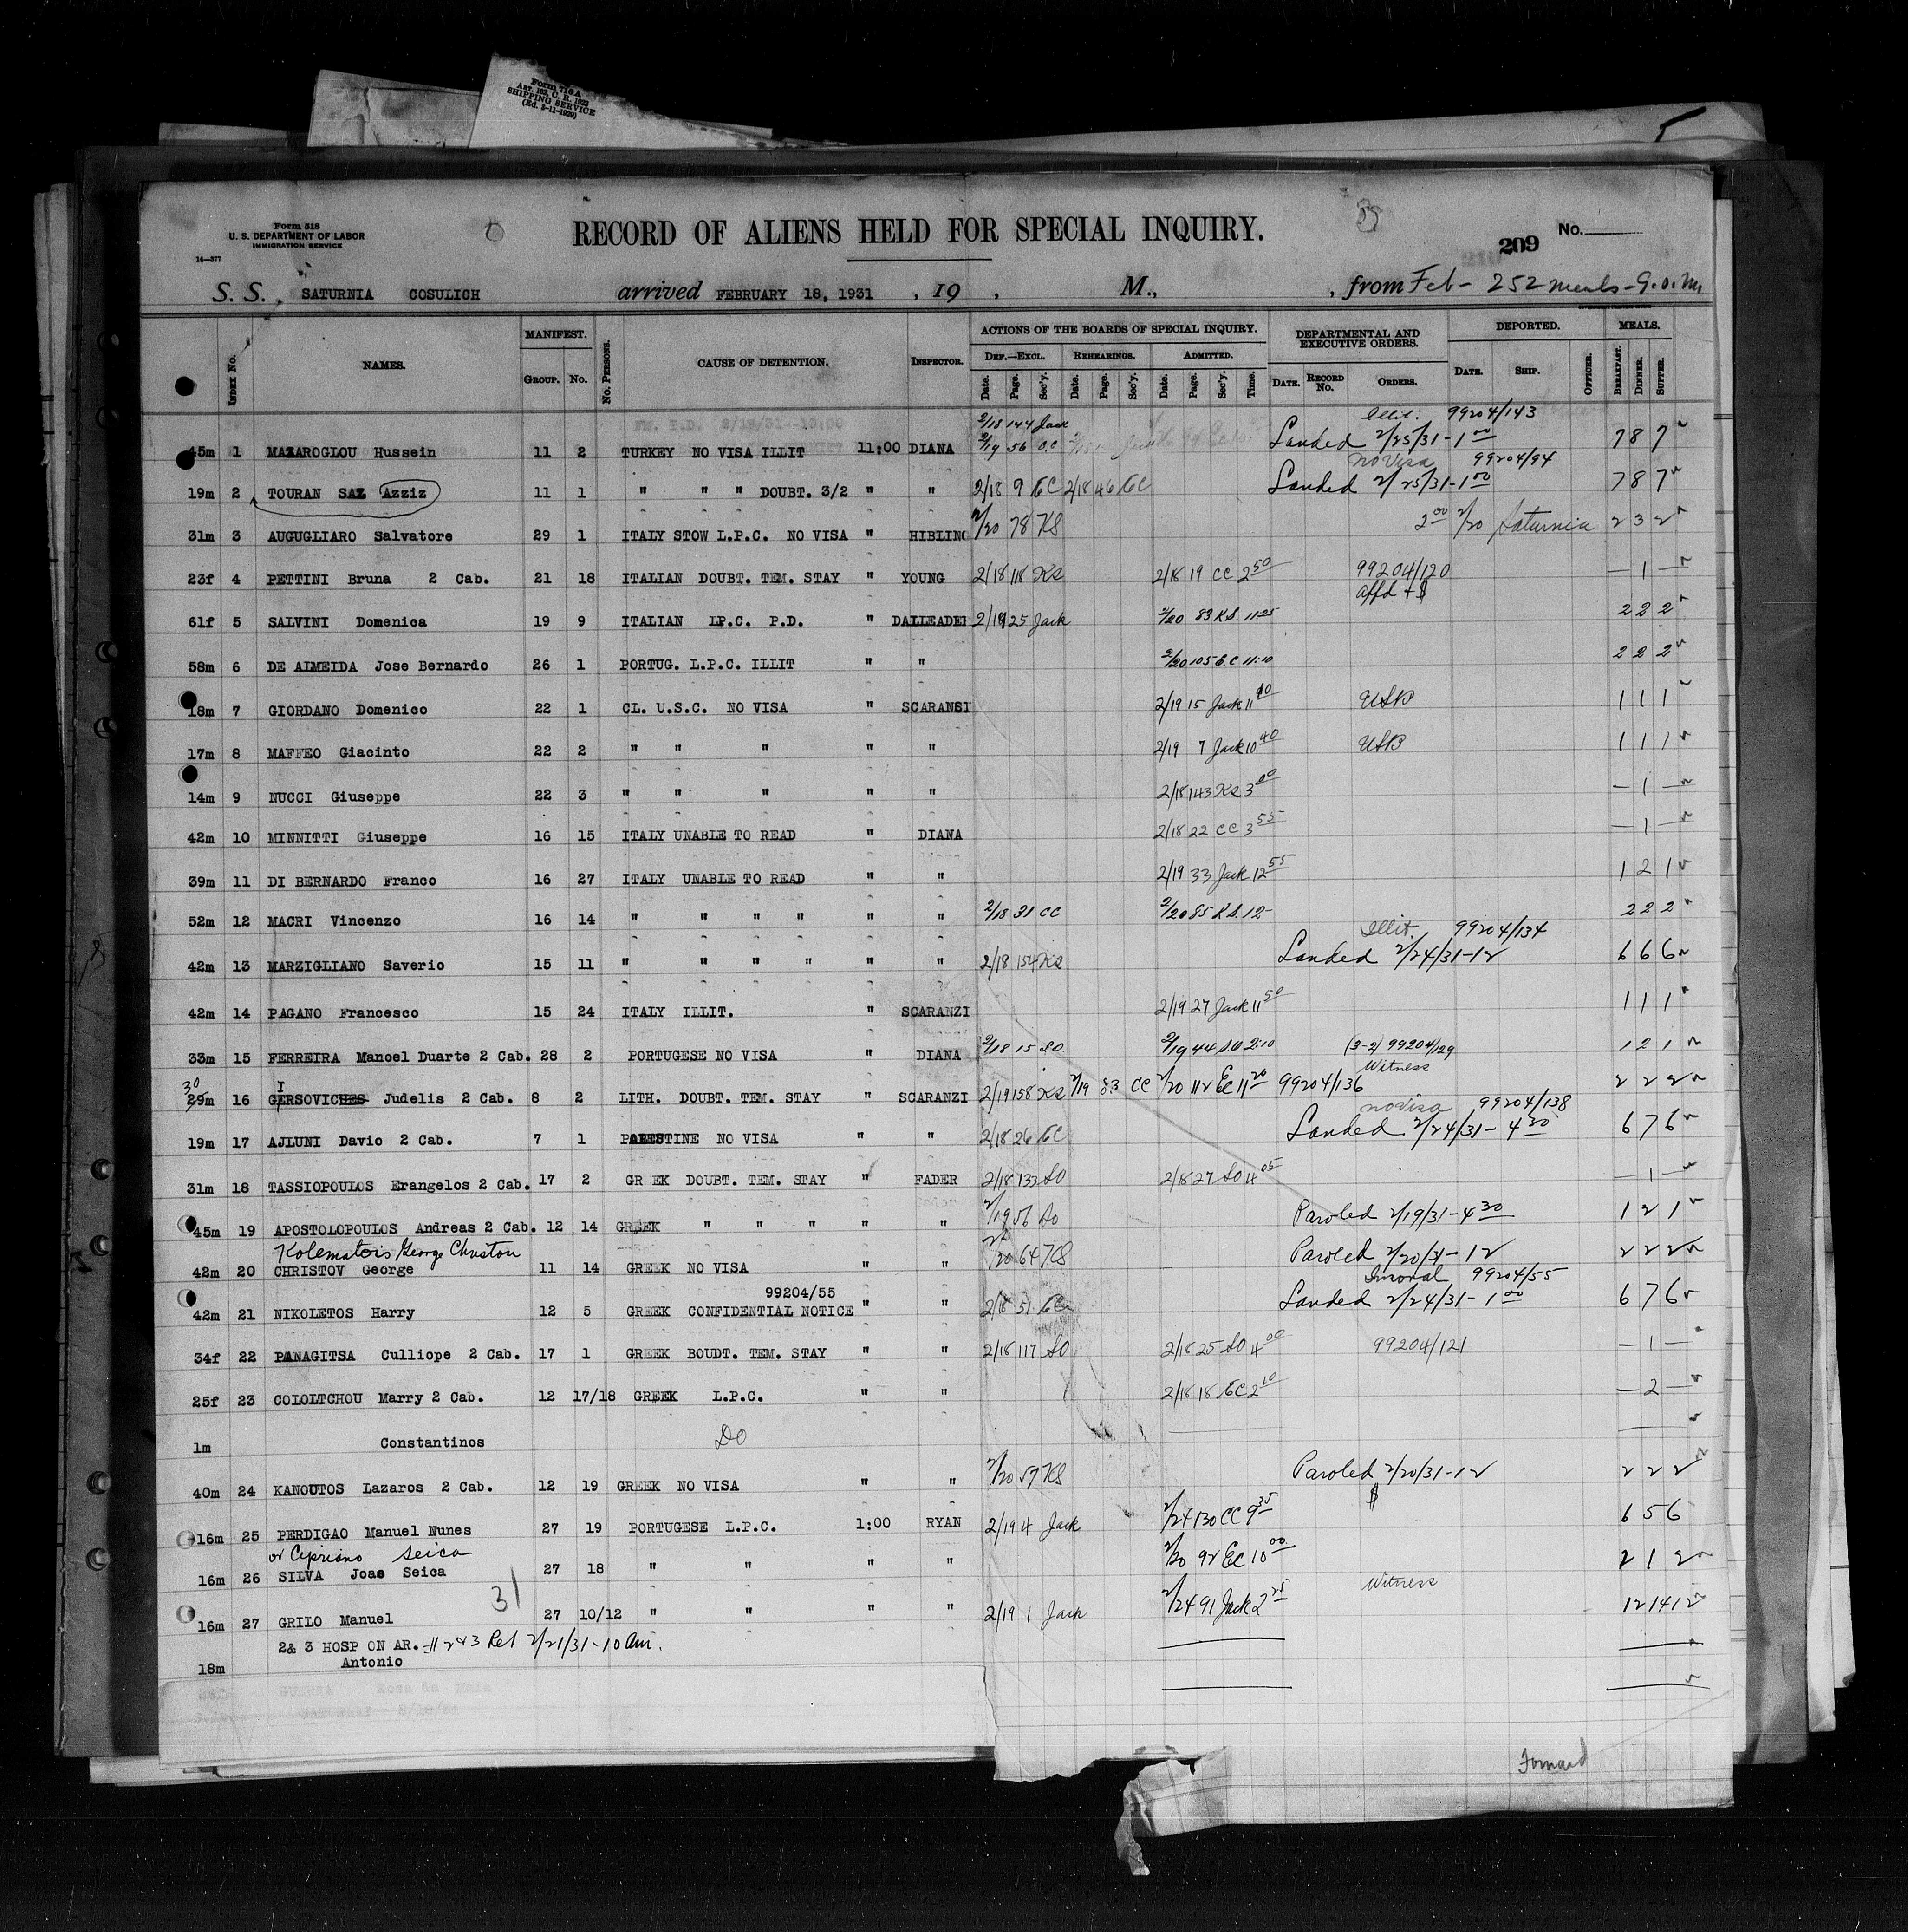 Form 710 A
Art. 162, C. R. 1923
SHIPPING SERVICE
(Ed. 5-11-1929)
Form 518
U. S. DEPARTMENT OF LABOR
IMMIGRATION SERVICE
14—377
RECORD OF ALIENS HELD FOR SPECIAL INQUIRY.
209 No.
S. S. SATURNIA COSULICH arrived FEBRUARY 18, 1931 , 19 , M., , from Feb - 252 meals - G.O.M.
INDEX NO. NAMES. MANIFEST. GROUP. NO. NO. PERSONS. CAUSE OF DETENTION. INSPECTOR. ACTIONS OF THE BOARDS OF SPECIAL INQUIRY. DEPARTMENTAL AND EXECUTIVE ORDERS. DEPORTED. MEALS.
DEF.—EXCL. REHEARINGS. ADMITTED.
Date. Page. Sec'y. Date. Page. Sec'y. Date. Page. Sec'y. Time. DATE. RECORD NO. ORDERS. DATE. SHIP. OFFICER. BREAKFAST. DINNER. SUPPER.
2/18 144 Jack Illit. 99204/143
45m 1 MAZAROGLOU Hussein 11 2 TURKEY NO VISA ILLIT 11:00 DIANA 2/19 56 O.C Landed 2/25/31-1 00 7 8 7
No Visa 99204/94
19m 2 TOURAN SAZ Azziz 11 1 " " " DOUBT. 3/2 " " 2/18 9 EC 2/18 46 EC Landed 2/25/31-1 00 7 8 7
31m 3 AUGUGLIARO Salvatore 29 1 ITALY STOW L.P.C. NO VISA " HIBLING 2/20 78 KS 2 00 2/20 Saturnia 2 3 2
23f 4 PETTINI Bruna 2 Cab. 21 18 ITALIAN DOUBT. TEM. STAY " YOUNG 2/18 118 KS 2/18 19 CC 2 50 99204/120 — 1 —
affd + $
61f 5 SALVINI Domenica 19 9 ITALIAN LP.C. P.D. " DALLEADEI 2/19 25 Jack 2/20 83 K.S. 11 25 2 2 2
58m 6 DE ALMEIDA Jose Bernardo 26 1 PORTUG. L.P.C. ILLIT " " 2/20 105 E.C 11:10 2 2 2
18m 7 GIORDANO Domenico 22 1 CL. U.S.C. NO VISA " SCARANSI 2/19 15 Jack 11 10 USB 1 1 1
17m 8 MAFFEO Giacinto 22 2 " " " " " 2/19 7 Jack 10 40 USB 1 1 1
14m 9 NUCCI Giuseppe 22 3 " " " " " 2/18 143 KS 3 00 — 1 —
42m 10 MINNITTI Giuseppe 16 15 ITALY UNABLE TO READ " DIANA 2/18 22 CC 3 55 — 1 —
39m 11 DI BERNARDO Franco 16 27 ITALY UNABLE TO READ " " 2/19 33 Jack 12 55 1 2 1
52m 12 MACRI Vincenzo 16 14 " " " " " " 2/18 31 CC 2/20 85 K.S. 12- 2 2 2
Illit. 99204/134
42m 13 MARZIGLIANO Saverio 15 11 " " " " " " 2/18 154 KS Landed 2/24/31-12 6 6 6
42m 14 PAGANO Francesco 15 24 ITALY ILLIT. " SCARANZI 2/19 27 Jack 11 50 1 1 1
33m 15 FERREIRA Manoel Duarte 2 Cab. 28 2 PORTUGESE NO VISA " DIANA 2/18 15 SO 2/19 44 SO 2:10 (3-2) 99204/129 1 2 1
Witness
30
29m 16 GERSOVICHES I Judelis 2 Cab. 8 2 LITH. DOUBT. TEM. STAY " SCARANZI 2/19 158 KS 2/19 53 CC 2/20 112 EC 11 20 99204/136 2 2 2
No Visa 99204/138
19m 17 AJLUNI Davio 2 Cab. 7 1 PALESTINE NO VISA " " 2/18 26 EC Landed 2/24/31- 4 30 6 7 6
31m 18 TASSIOPOULOS Erangelos 2 Cab. 17 2 GR EK DOUBT. TEM. STAY " FADER 2/18 133 SO 2/18 27 SO 4 05 — 1 —
45m 19 APOSTOLOPOULOS Andreas 2 Cab. 12 14 GREEK " " " " " 2/19 56 So Paroled 2/19/31-4 30 1 2 1
Kolematois George Christou
42m 20 CHRISTOV George 11 14 GREEK NO VISA " " 2/20 64 KS Paroled 2/20/31-12 2 2 2
99204/55 Imoral 99204/55
42m 21 NIKOLETOS Harry 12 5 GREEK CONFIDENTIAL NOTICE " " 2/18 51 EC Landed 2/24/31-1 00 6 7 6
34f 22 PANAGITSA Culliope 2 Cab. 17 1 GREEK BOUDT. TEM. STAY " " 2/18 117 SO 2/18 25 SO 4 00 99204/121 — 1 —
25f 23 COLOLTCHOU Marry 2 Cab. 12 17/18 GREEK L.P.C. " " 2/18 18 EC 2 10 — 2 —
1m Constantinos DO
40m 24 KANOUTOS Lazaros 2 Cab. 12 19 GREEK NO VISA " " 2/20 57 KS Paroled 2/20/31-12 2 2 2
$
16m 25 PERDIGAO Manuel Nunes 27 19 PORTUGESE L.P.C. 1:00 RYAN 2/19 4 Jack 2/24 130 CC 9 35 6 5 6
or Cipriano Seica
16m 26 SILVA Joao Seica 27 18 " " " " 2/20 92 EC 10 00 2 1 2
31 Witness
16m 27 GRILO Manuel 27 10/12 " " " " 2/19 1 Jack 2/24 91 Jack 2 25 12 14 12
2& 3 HOSP ON AR. -# 2 & 3 Rel 2/21/31-10 Am.
18m Antonio
Forward